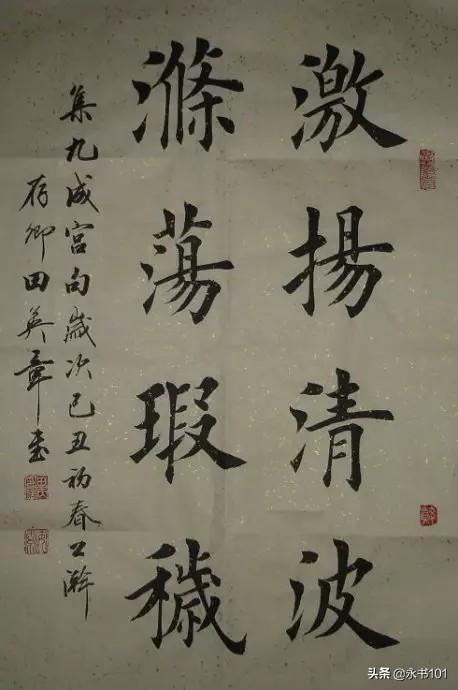 激揚清波
滌蕩瑕穢
集九成宮句歲次己丑初春公歷
存卿田英章書
头条 @永书101